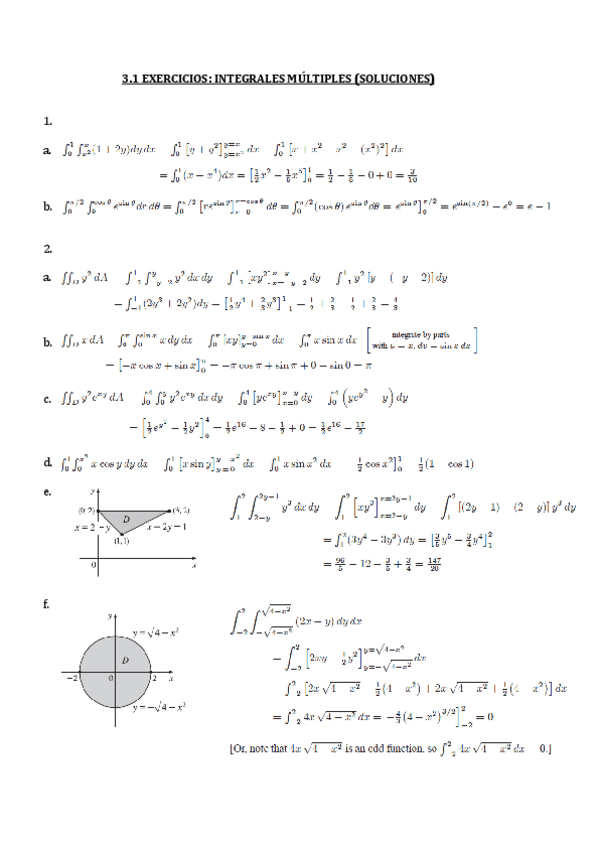 3.1 EXERCICIOS: INTEGRALES MÚLTIPLES (SOLUCIONES)
1.
a. ∫₀¹ ∫ₓ²ˣ (1 + 2y) dy dx ∫₀¹ [y + y²]_{y=x²}^{y=x} dx ∫₀¹ [x + x² x² (x²)²] dx
= ∫₀¹ (x − x⁴) dx = [½x² − ⅕x⁵]₀¹ = ½ − ⅕ − 0 + 0 = 3/10
b. ∫₀^{π/2} ∫₀^{cos θ} e^{sin θ} dr dθ = ∫₀^{π/2} [re^{sin θ}]_{r=0}^{r=cos θ} dθ = ∫₀^{π/2} (cos θ) e^{sin θ} dθ = e^{sin θ}]₀^{π/2} = e^{sin(π/2)} − e⁰ = e − 1
2.
a. ∫∫_D y² dA ∫₋₁¹ ∫_{−y−2}^{y} y² dx dy ∫₋₁¹ [xy²]_{x=−y−2}^{x=y} dy ∫₋₁¹ y² [y (−y 2)] dy
= ∫₋₁¹ (2y³ + 2y²) dy = [½y⁴ + ⅔y³]₋₁¹ = ½ + ⅔ ½ + ⅔ = 4/3
b. ∫∫_D x dA ∫₀^π ∫₀^{sin x} x dy dx ∫₀^π [xy]_{y=0}^{y=sin x} dx ∫₀^π x sin x dx [integrate by parts
with u = x, dv = sin x dx]
= [−x cos x + sin x]₀^π = −π cos π + sin π + 0 − sin 0 = π
c. ∫∫_D y²e^{xy} dA ∫₀⁴ ∫₀^y y²e^{xy} dx dy ∫₀⁴ [ye^{xy}]_{x=0}^{x=y} dy ∫₀⁴ (ye^{y²} y) dy
= [½e^{y²} − ½y²]₀⁴ = ½e¹⁶ − 8 − ½ + 0 = ½e¹⁶ − 17/2
d. ∫₀¹ ∫₀^{x²} x cos y dy dx ∫₀¹ [x sin y]_{y=0}^{y=x²} dx ∫₀¹ x sin x² dx ½ cos x²]₀¹ ½(1 cos 1)
e.
y
(0, 2)
(3, 2)
D
x = 2 − y
x = 2y − 1
(1, 1)
0
x
∫₁² ∫_{2−y}^{2y−1} y³ dx dy ∫₁² [xy³]_{x=2−y}^{x=2y−1} dy ∫₁² [(2y 1) (2 y)] y³ dy
= ∫₁² (3y⁴ − 3y³) dy = [⅗y⁵ − ¾y⁴]₁²
= 96/5 − 12 − 3/5 + 3/4 = 147/20
f.
y
y = √4 − x²
D
−2
0
2
x
y = −√4 − x²
∫₋₂² ∫_{−√4−x²}^{√4−x²} (2x − y) dy dx
= ∫₋₂² [2xy ½y²]_{y=−√4−x²}^{y=√4−x²} dx
∫₋₂² [2x √4 x² ½(4 x²) + 2x √4 x² + ½(4 x²)] dx
= ∫₋₂² 4x √4 − x² dx = −4/3 (4 − x²)^{3/2}]₋₂² = 0
[Or, note that 4x √4 x² is an odd function, so ∫₋₂² 4x √4 x² dx 0.]